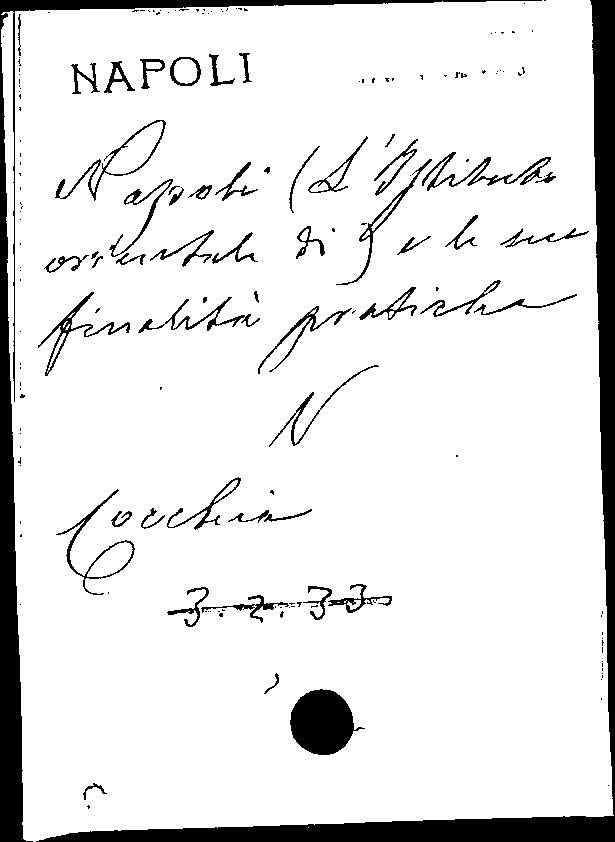 NAPOLI
Napoli (L'Istituto
orientale di) e le sue
finalità pratiche
N
Cocchia
3.2.33